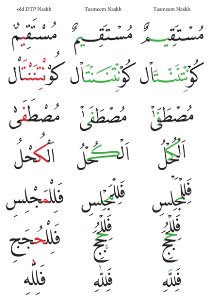 old DTP Naskh Tasmeem Naskh Tasmeem Naskh
مُسْتَقِيمٌ مُسْتَقِيمٌ مُسْتَقِيمٌ
مُصْطَفَىٰ مُصْطَفَىٰ مُصْطَفَىٰ
اَلْكُحْلُ اَلْكُحْلُ اَلْكُحْلُ
فَلِلْمَجْلِسِ فَلِلْمَجْلِسِ فَلِلْمَجْلِسِ
فَلِلْحُجَجِ فَلِلْحُجَجِ فَلِلْحُجَجِ
فَلِلّٰهِ فَلِلّٰهِ فَلِلّٰهِ